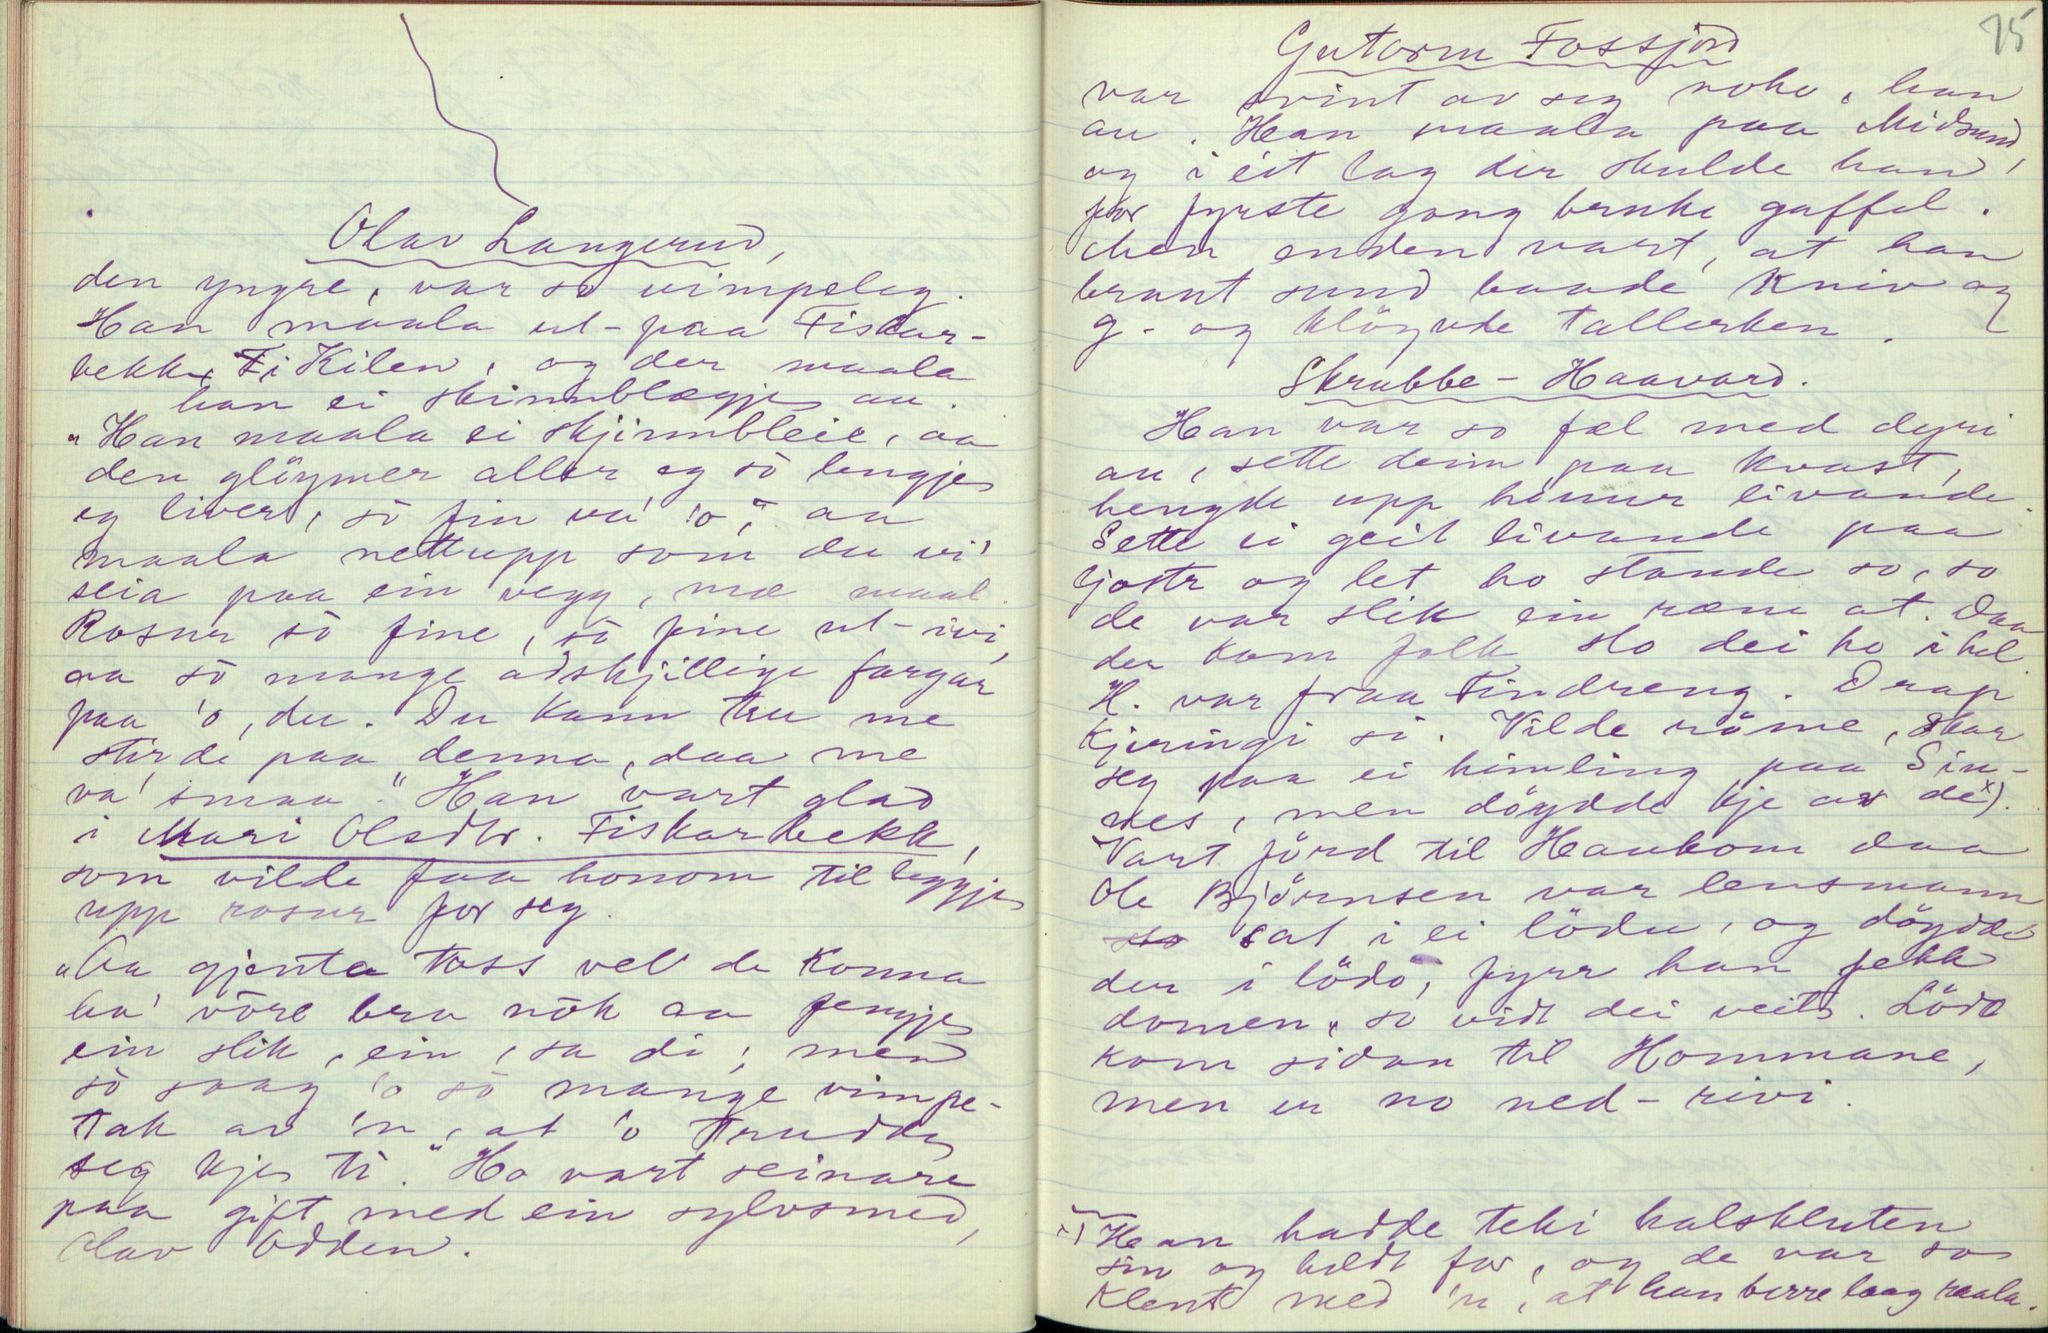 Olav Langerud,
den yngre, var so vimpeleg.
Han maala ut-paa Fiskar-
bekk, i Kilen, og der maala
han ei skinnblægje au.
"Han maala ei skjinnbleie, aa
den glöymer aller eg sò lengje
eg liver, sò fin va' 'o", aa
maala nettupp som du vi'
seia paa ein vegg, mæ maal.
Rosur sò fine, sò fine ut-ivi,
aa sò mange adskjillige fargar
paa 'o, du. Du kann tru me
stirde paa denna, daa me
va' smaa." Han vart glad
i Mari Olsdtr. Fiskarbekk,
som vilde faa honom til leggje
upp rosur for seg.
"Aa gjenta tòss vel de konna
ha' vòre bra nòk aa fengje
ein slik, ein, sa di; men
sò saag 'o sò mange vimpe-
tak av 'n, at 'o trudde
seg kje ti." Ho vart seinare
paa gift med ein sylvsmed,
Olav Odden.
75
Gutorm Fossjord
var svint av seg noko, han
au. Han maala paa Midsund,
og i eit lag der skulde han
for fyrste gong bruke gaffel.
Men enden vart, at han
braut sund baade kniv og
g- og klöyvde tallerken.
Skrubbe-Haavard.
Han var so fæl med dyri
au, sette deim paa kvast,
hengde upp hönur livande.
Sette ei geit livande paa
ljostr og let ho stande so, so
de var slik ein ræm at. Daa
der kom folk, slo dei ho i hel.
H. var fraa Tindreng. Drap
kjeringi si. Vilde röme, skar
seg paa ei himling paa Sin-
nes, men döydde kje av dex).
Vart förd til Haukom daa
Ole Björnsen var lensmann
sat i ei lödu, og döydde
der i lödo, fyrr han fekk
domen, so vidt dei veit. Löda
kom sidan til Hommane,
men er no ned-rivi.
x) Han hadde teki halskluten
sin og heldt for, og de var so
klent med 'n, at han berre laag raala.